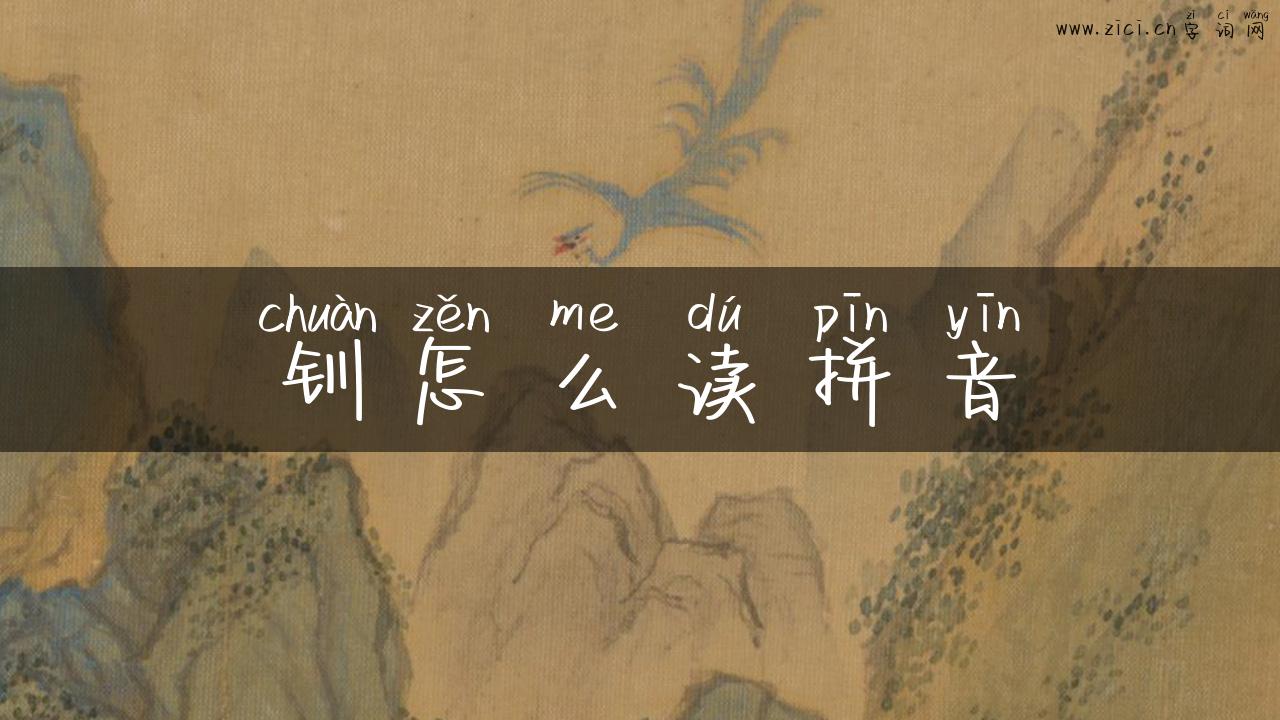 zì cí wǎng
www.zici.cn字词网
chuàn zěn me dú pīn yīn
钏怎么读拼音